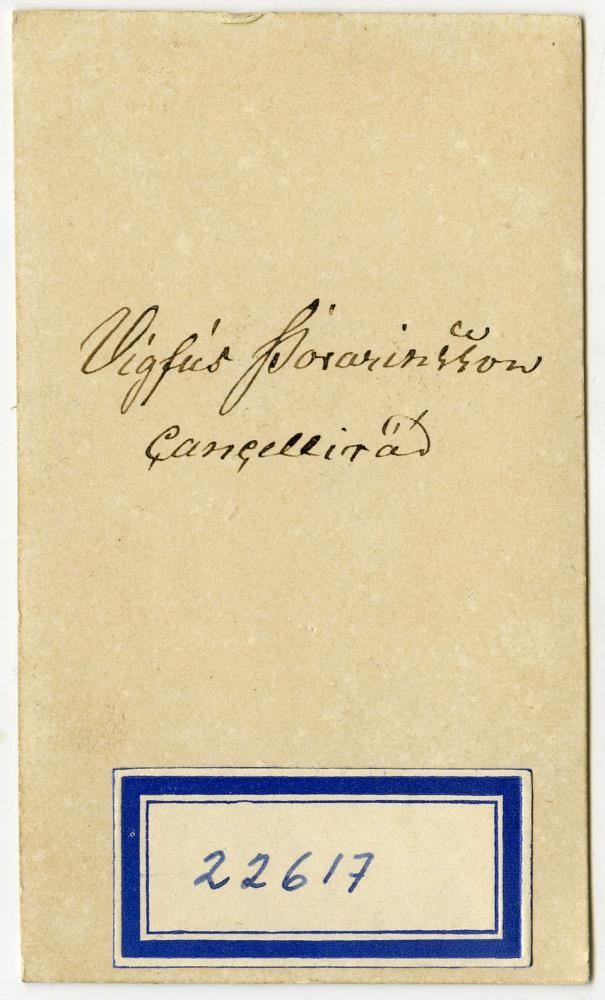 Vigfús Þórarinsson
Cancelliráð
22617